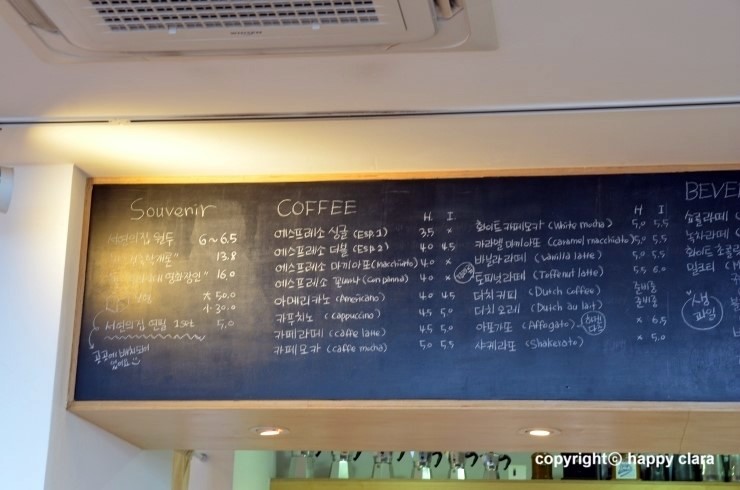 Souvenir
서연의집 원두 6~6.5
13.8
영화장인" 16.0
大 50.0
小 30.0
서연의집 연필 1set 5.0
곳곳에 배치되어
있어요
COFFEE
H. I.
에스프레소 싱글 (ESP.1) 3.5 ×
에스프레소 더블 (ESP.2) 4.0 4.5
에스프레소 마끼아또 (Macchiato) 4.0 ×
에스프레소 꼰파나 (Con panna) 4.0 ×
아메리카노 (Americano) 4.0 4.5
카푸치노 (Cappuccino) 4.5 5.0
카페라떼 (Caffe latte) 4.5 5.0
카페모카 (Caffe mocha) 5.0 5.5
H I
화이트카페모카 (White mocha) 5.0 5.5
카라멜 마끼아또 (Caramel macchiato) 5.0 5.5
바닐라라떼 (Vanilla latte) 5.0 5.5
토피넛라떼 (Toffenut latte) 5.5 6.0
더치커피 (Dutch coffee) 준비중
더치오레 (Dutch au lait) 준비중
아포가또 (Affogato) × 6.5
샤케라또 (Shakerato) × 5.0
BEVE
쇼콜라떼
녹차라떼
화이트초콜릿
밀크티
생
과일
copyright© happy clara